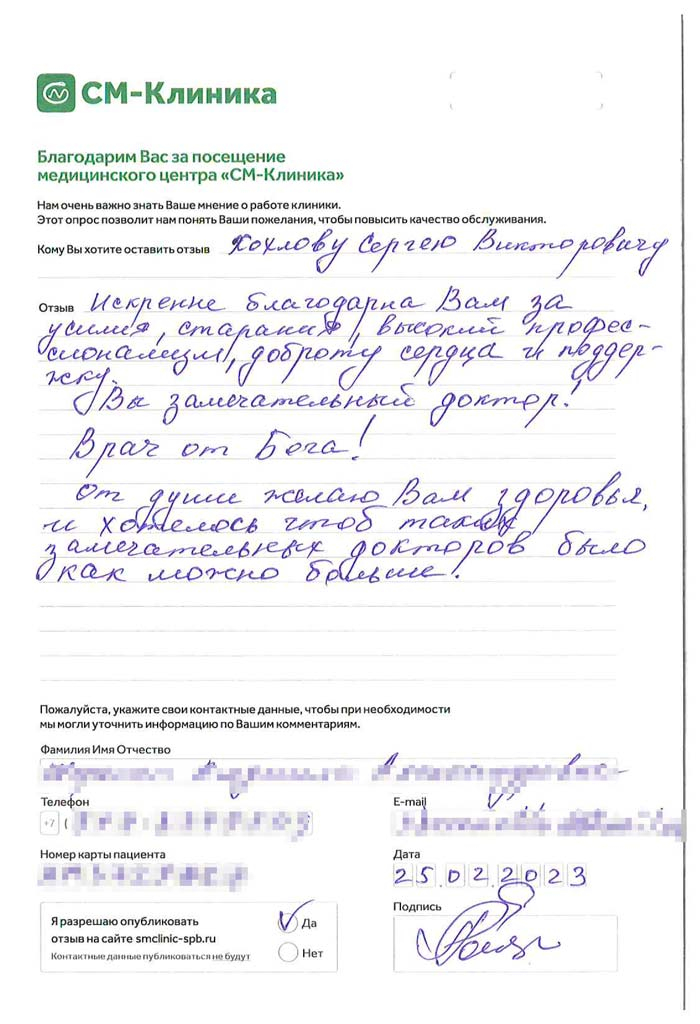 СМ-Клиника
Благодарим Вас за посещение
медицинского центра «СМ-Клиника»
Нам очень важно знать Ваше мнение о работе клиники.
Этот опрос позволит нам понять Ваши пожелания, чтобы повысить качество обслуживания.
Кому Вы хотите оставить отзыв Хохлову Сергею Викторовичу
Отзыв Искренне благодарна Вам за
усилия, старания, высокий профес-
сионализм, доброту сердца и поддер-
жку.
Вы замечательный доктор!
Врач от Бога!
От души желаю Вам здоровья,
и хотелось чтоб таких
замечательных докторов было
как можно больше!
Пожалуйста, укажите свои контактные данные, чтобы при необходимости
мы могли уточнить информацию по Вашим комментариям.
Фамилия Имя Отчество
Телефон E-mail
+7 (
Номер карты пациента Дата
25.02.2023
Подпись
Я разрешаю опубликовать Да
отзыв на сайте smclinic-spb.ru
Контактные данные публиковаться не будут Нет